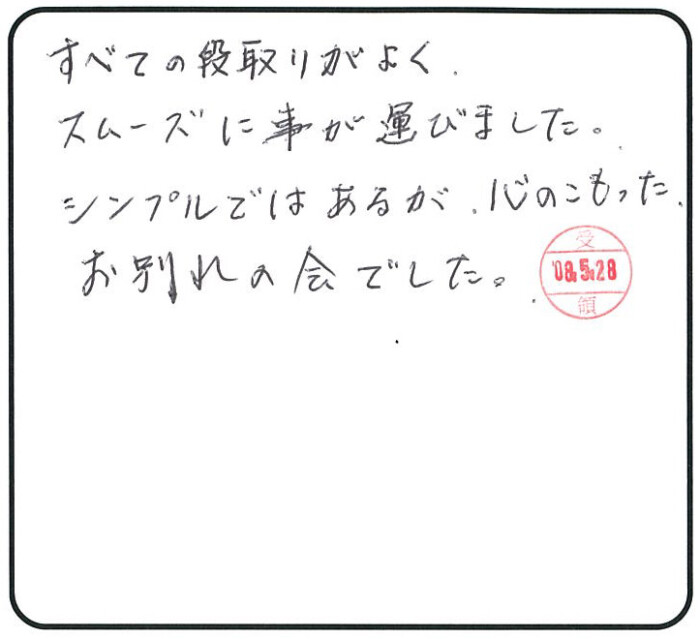 すべての段取りがよく、
スムーズに事が運びました。
シンプルではあるが、心のこもった、
お別れの会でした。
受
'08.5.28
領